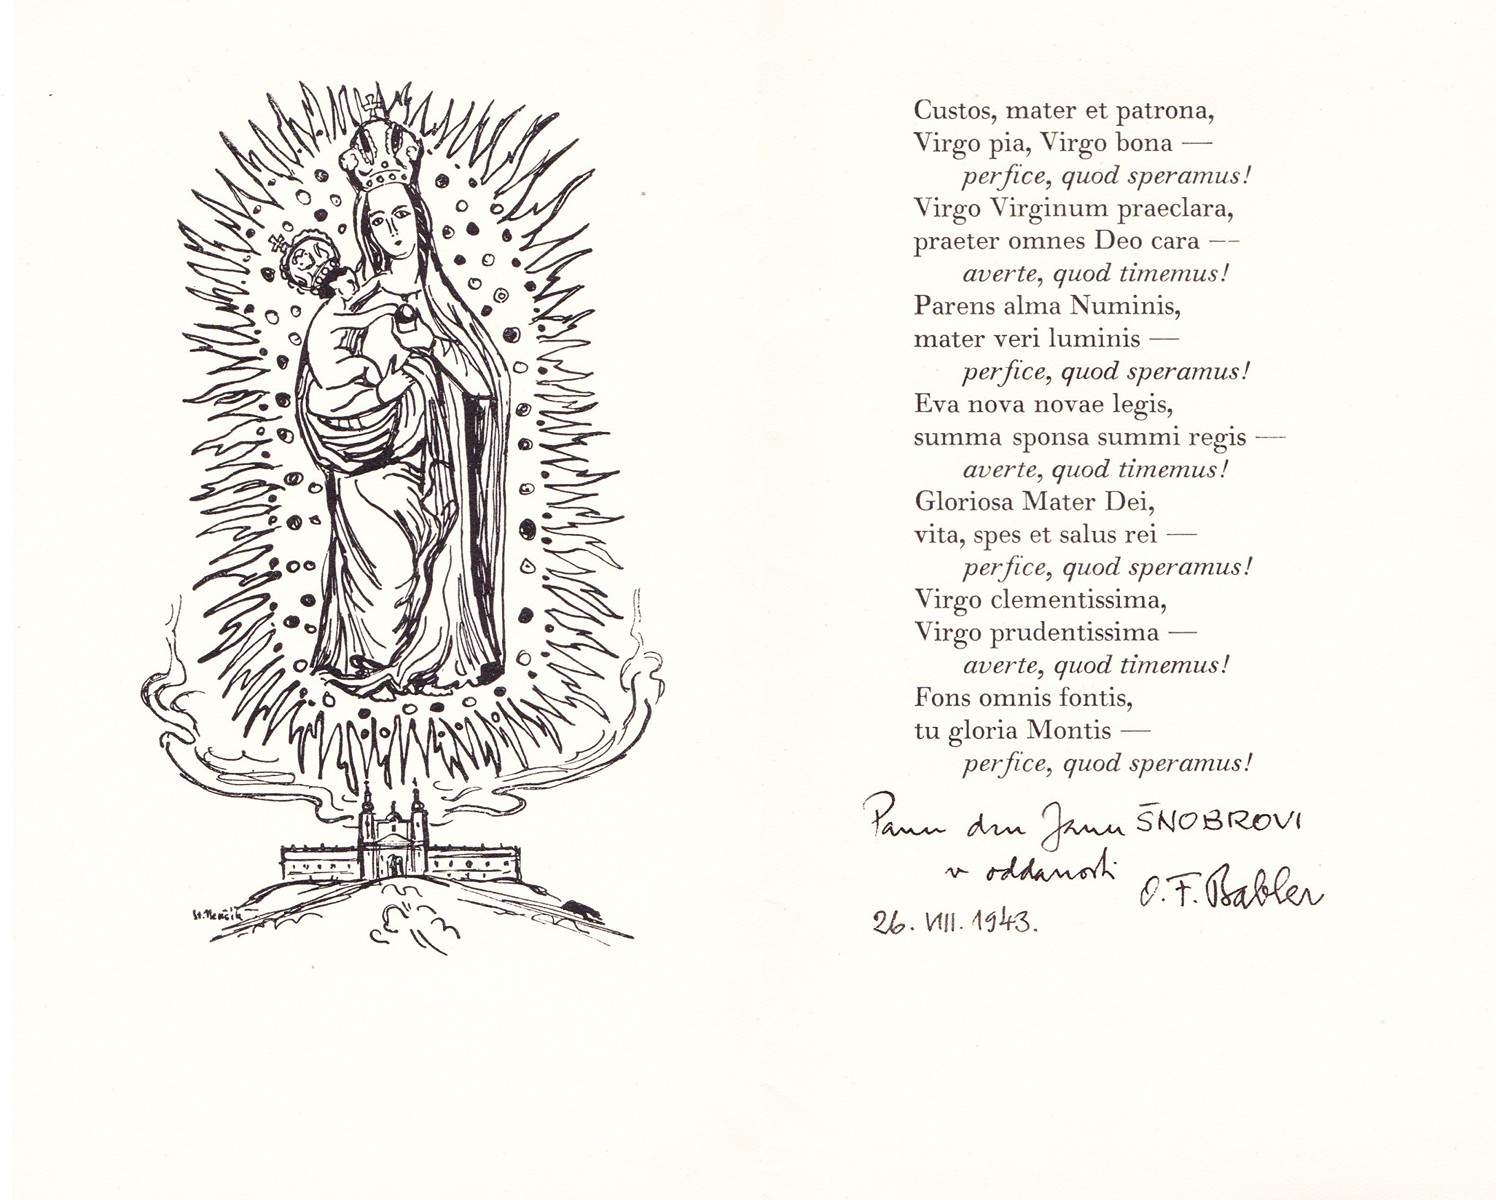 Custos, mater et patrona,
Virgo pia, Virgo bona —
perfice, quod speramus!
Virgo Virginum praeclara,
praeter omnes Deo cara —
averte, quod timemus!
Parens alma Numinis,
mater veri luminis —
perfice, quod speramus!
Eva nova novae legis,
summa sponsa summi regis —
averte, quod timemus!
Gloriosa Mater Dei,
vita, spes et salus rei —
perfice, quod speramus!
Virgo clementissima,
Virgo prudentissima —
averte, quod timemus!
Fons omnis fontis,
tu gloria Montis —
perfice, quod speramus!
Panu dru Janu ŠNOBROVI
v oddanosti
O. F. Babler
26. VIII. 1943.